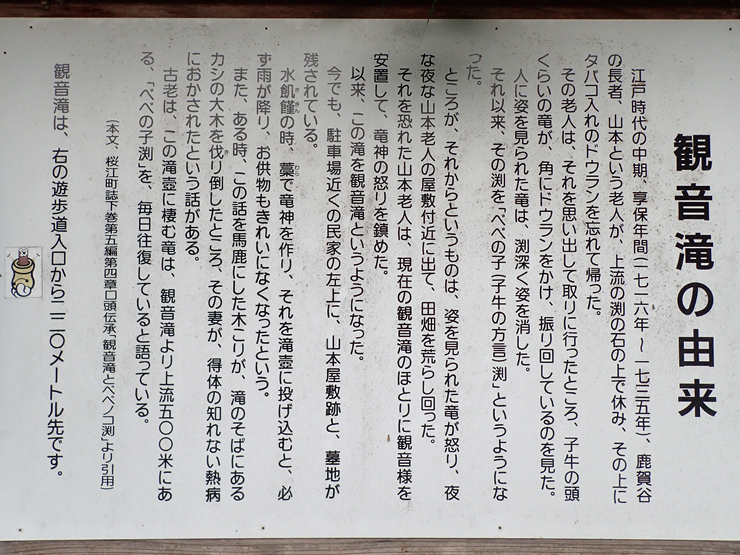 観音滝の由来
江戸時代の中期、享保年間(一七一六年～一七三五年)、鹿賀谷
の長者、山本という老人が、上流の渕の石の上で休み、その上に
タバコ入れのドウランを忘れて帰った。
その老人は、それを思い出して取りに行ったところ、子牛の頭
くらいの竜が、角にドウランをかけ、振り回しているのを見た。
人に姿を見られた竜は、渕深く姿を消した。
それ以来、その渕を「べべの子(子牛の方言)渕」というようにな
った。
ところが、それからというものは、姿を見られた竜が怒り、夜
な夜な山本老人の屋敷付近に出て、田畑を荒らし回った。
それを恐れた山本老人は、現在の観音滝のほとりに観音様を
安置して、竜神の怒りを鎮めた。
以来、この滝を観音滝というようになった。
今でも、駐車場近くの民家の左上に、山本屋敷跡と、墓地が
残されている。
水飢饉の時、藁で竜神を作り、それを滝壺に投げ込むと、必
ず雨が降り、お供物もきれいになくなったという。
また、ある時、この話を馬鹿にした木こりが、滝のそばにある
カシの大木を伐り倒したところ、その妻が、得体の知れない熱病
におかされたという話がある。
古老は、この滝壺に棲む竜は、観音滝より上流五〇〇米にあ
る、「べべの子渕」を、毎日往復していると語っている。
(本文、桜江町誌下巻第五編第四章口頭伝承「観音滝とベベノコ渕」より引用)
観音滝は、右の遊歩道入口から二二〇メートル先です。